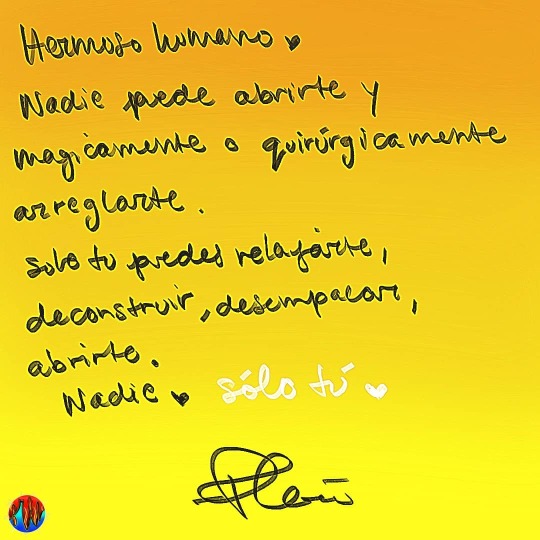 Hermoso humano ♥
Nadie puede abrirte y
magicamente o quirúrgicamente
arreglarte.
Solo tu puedes relajarte,
deconstruir, desempacar,
abrirte.
Nadie ♥ sólo tú ♥